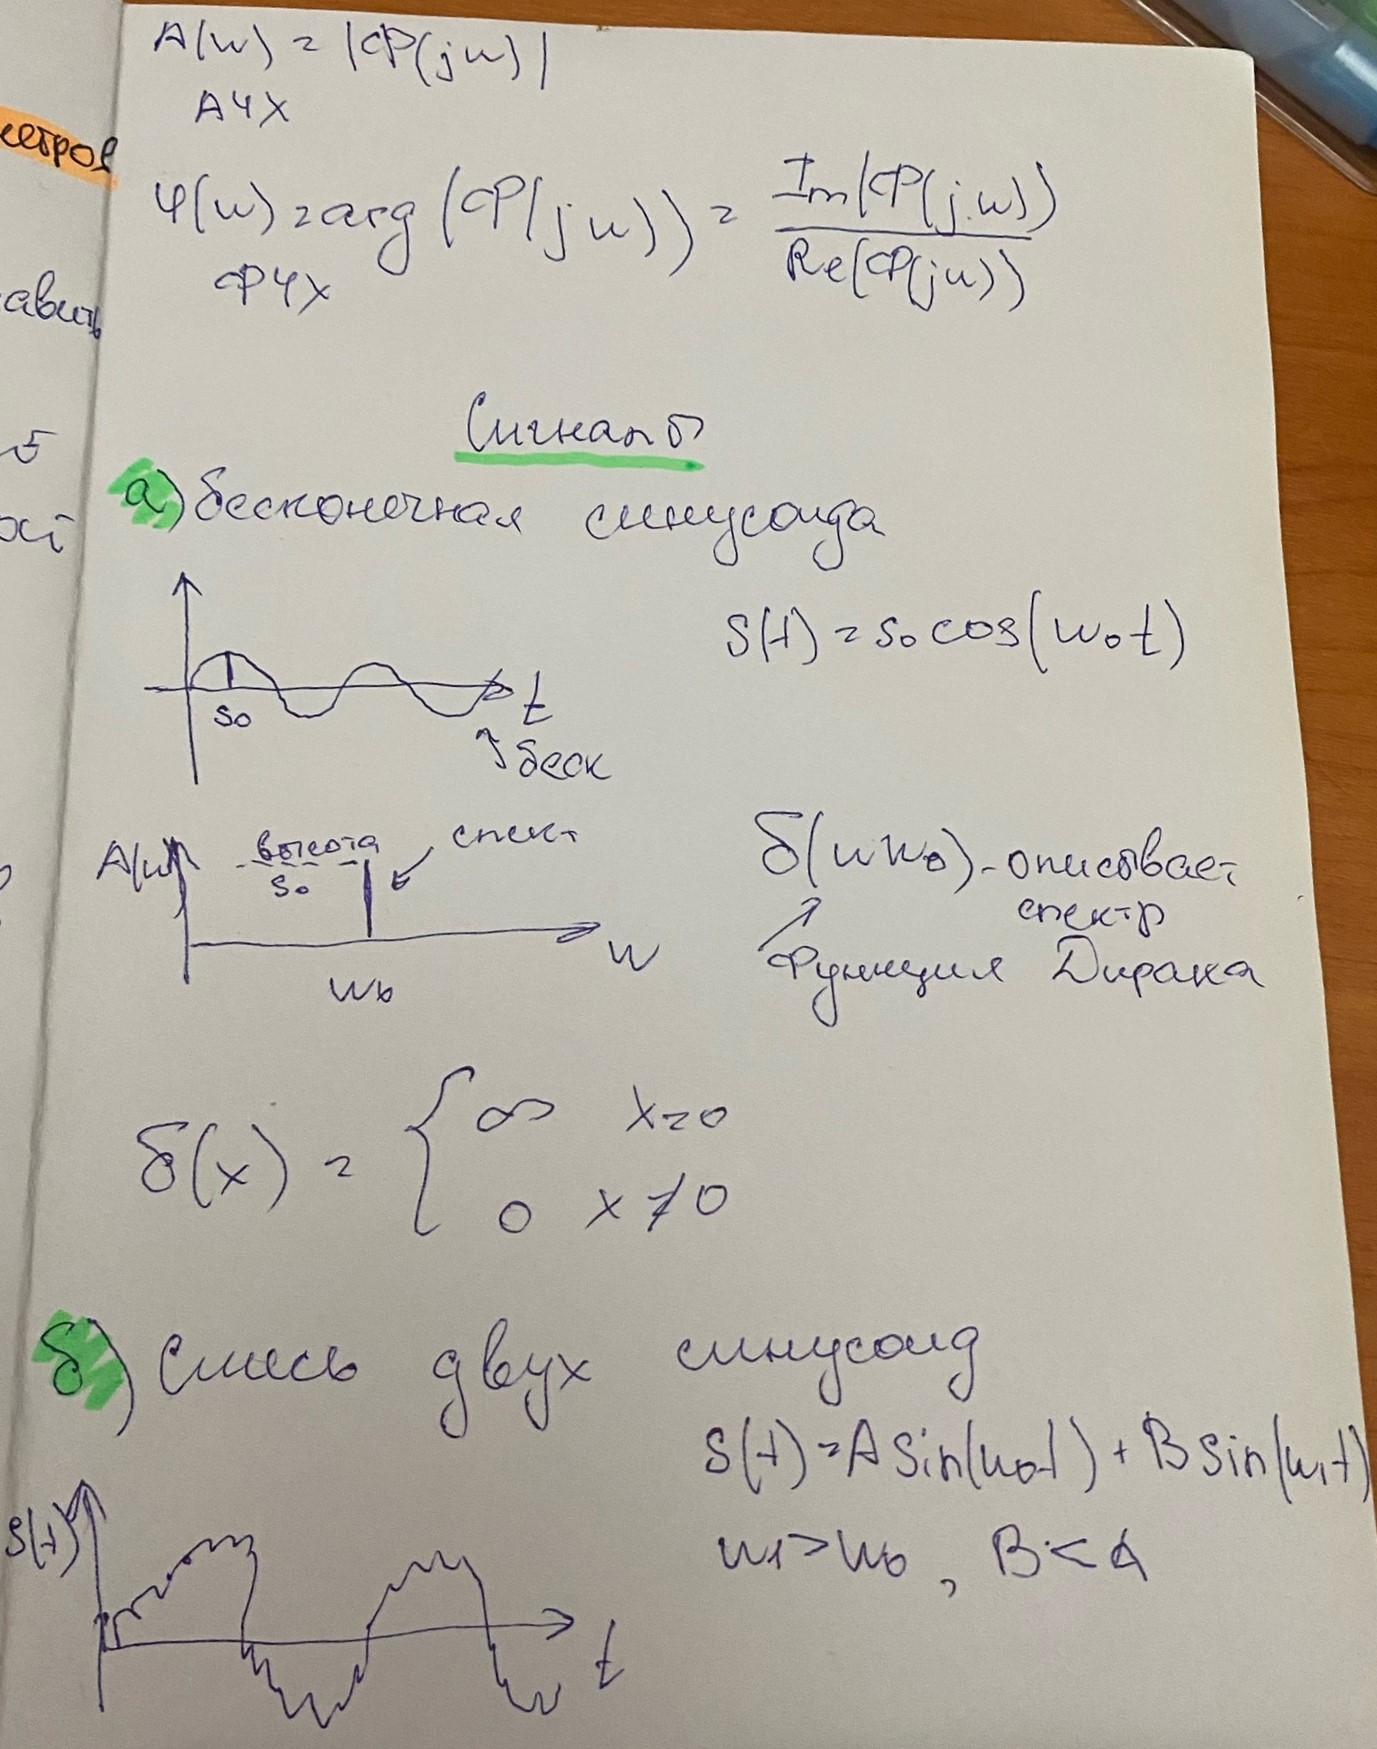 A(w) = |Ф(jw)|
АЧХ
φ(w) = arg(Ф(jw)) = Im(Ф(jw)) / Re(Ф(jw))
ФЧХ
Сигналы
а) бесконечная синусоида
S(t) = S₀ cos(w₀t)
S₀
t
беск
A(w)
высота
S₀
спект
w
w₀
описывает
спектр
функция Дирака
δ(x) = { ∞ x=0
0 x≠0
б) Смесь двух синусоид
S(t) = A sin(w₀t) + B sin(w₁t)
w₁ > w₀, B < A
S(t)
t
авить